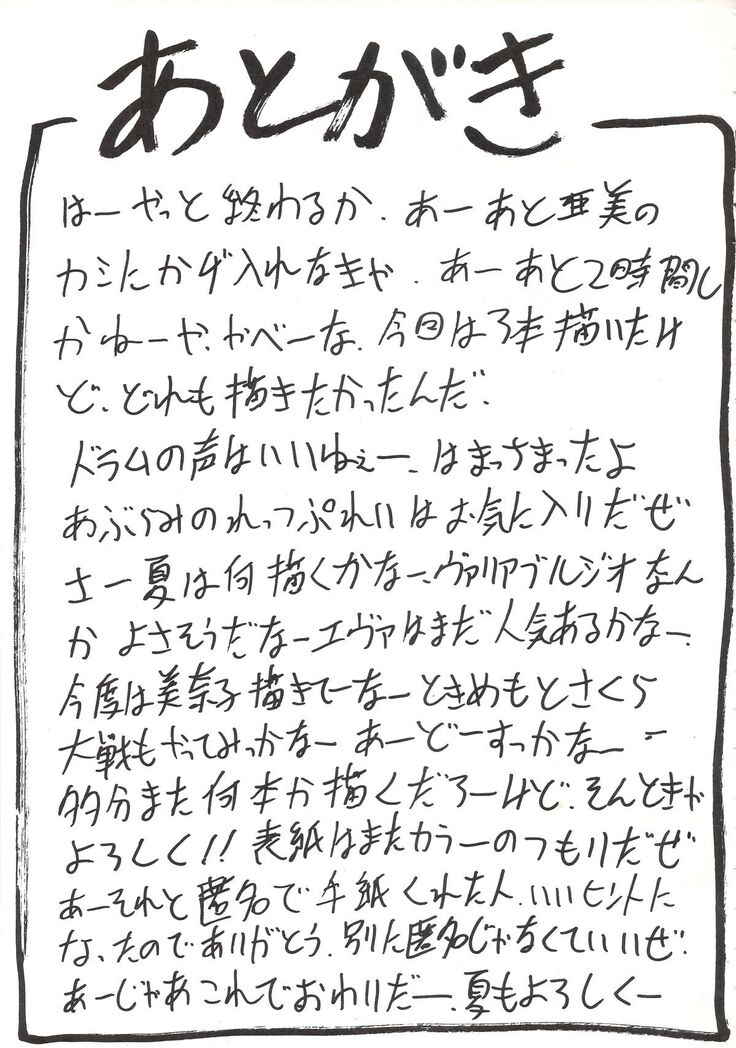 あとがき
はーやっと終わるか、あーあと亜美の
カミにかげ入れなきゃ、あーあと2時間し
かねーや、かべーな、今回は3本描いたけ
ど、どれも描きたかったんだ、
ドラムの声はいいねぇー、はまっちまったよ
あぶらみのれっつぷれいはお気に入りだぜ
さー夏は何描くかなー、ヴァリアブルジオなん
か よさそうだなーエヴァはまだ人気あるかなー、
今度は美奈子描きてーなーときめもとさくら
大戦もやってみっかなー あーどーすっかなー
多分また何本か描くだろーけど、そんときゃ
よろしく!!表紙はまたカラーのつもりだぜ
あーそれと匿名で手紙くれた人、いいヒントに
なったのでありがとう、別に匿名じゃなくていいぜ、
あーじゃあこれでおわりだー、夏もよろしくー